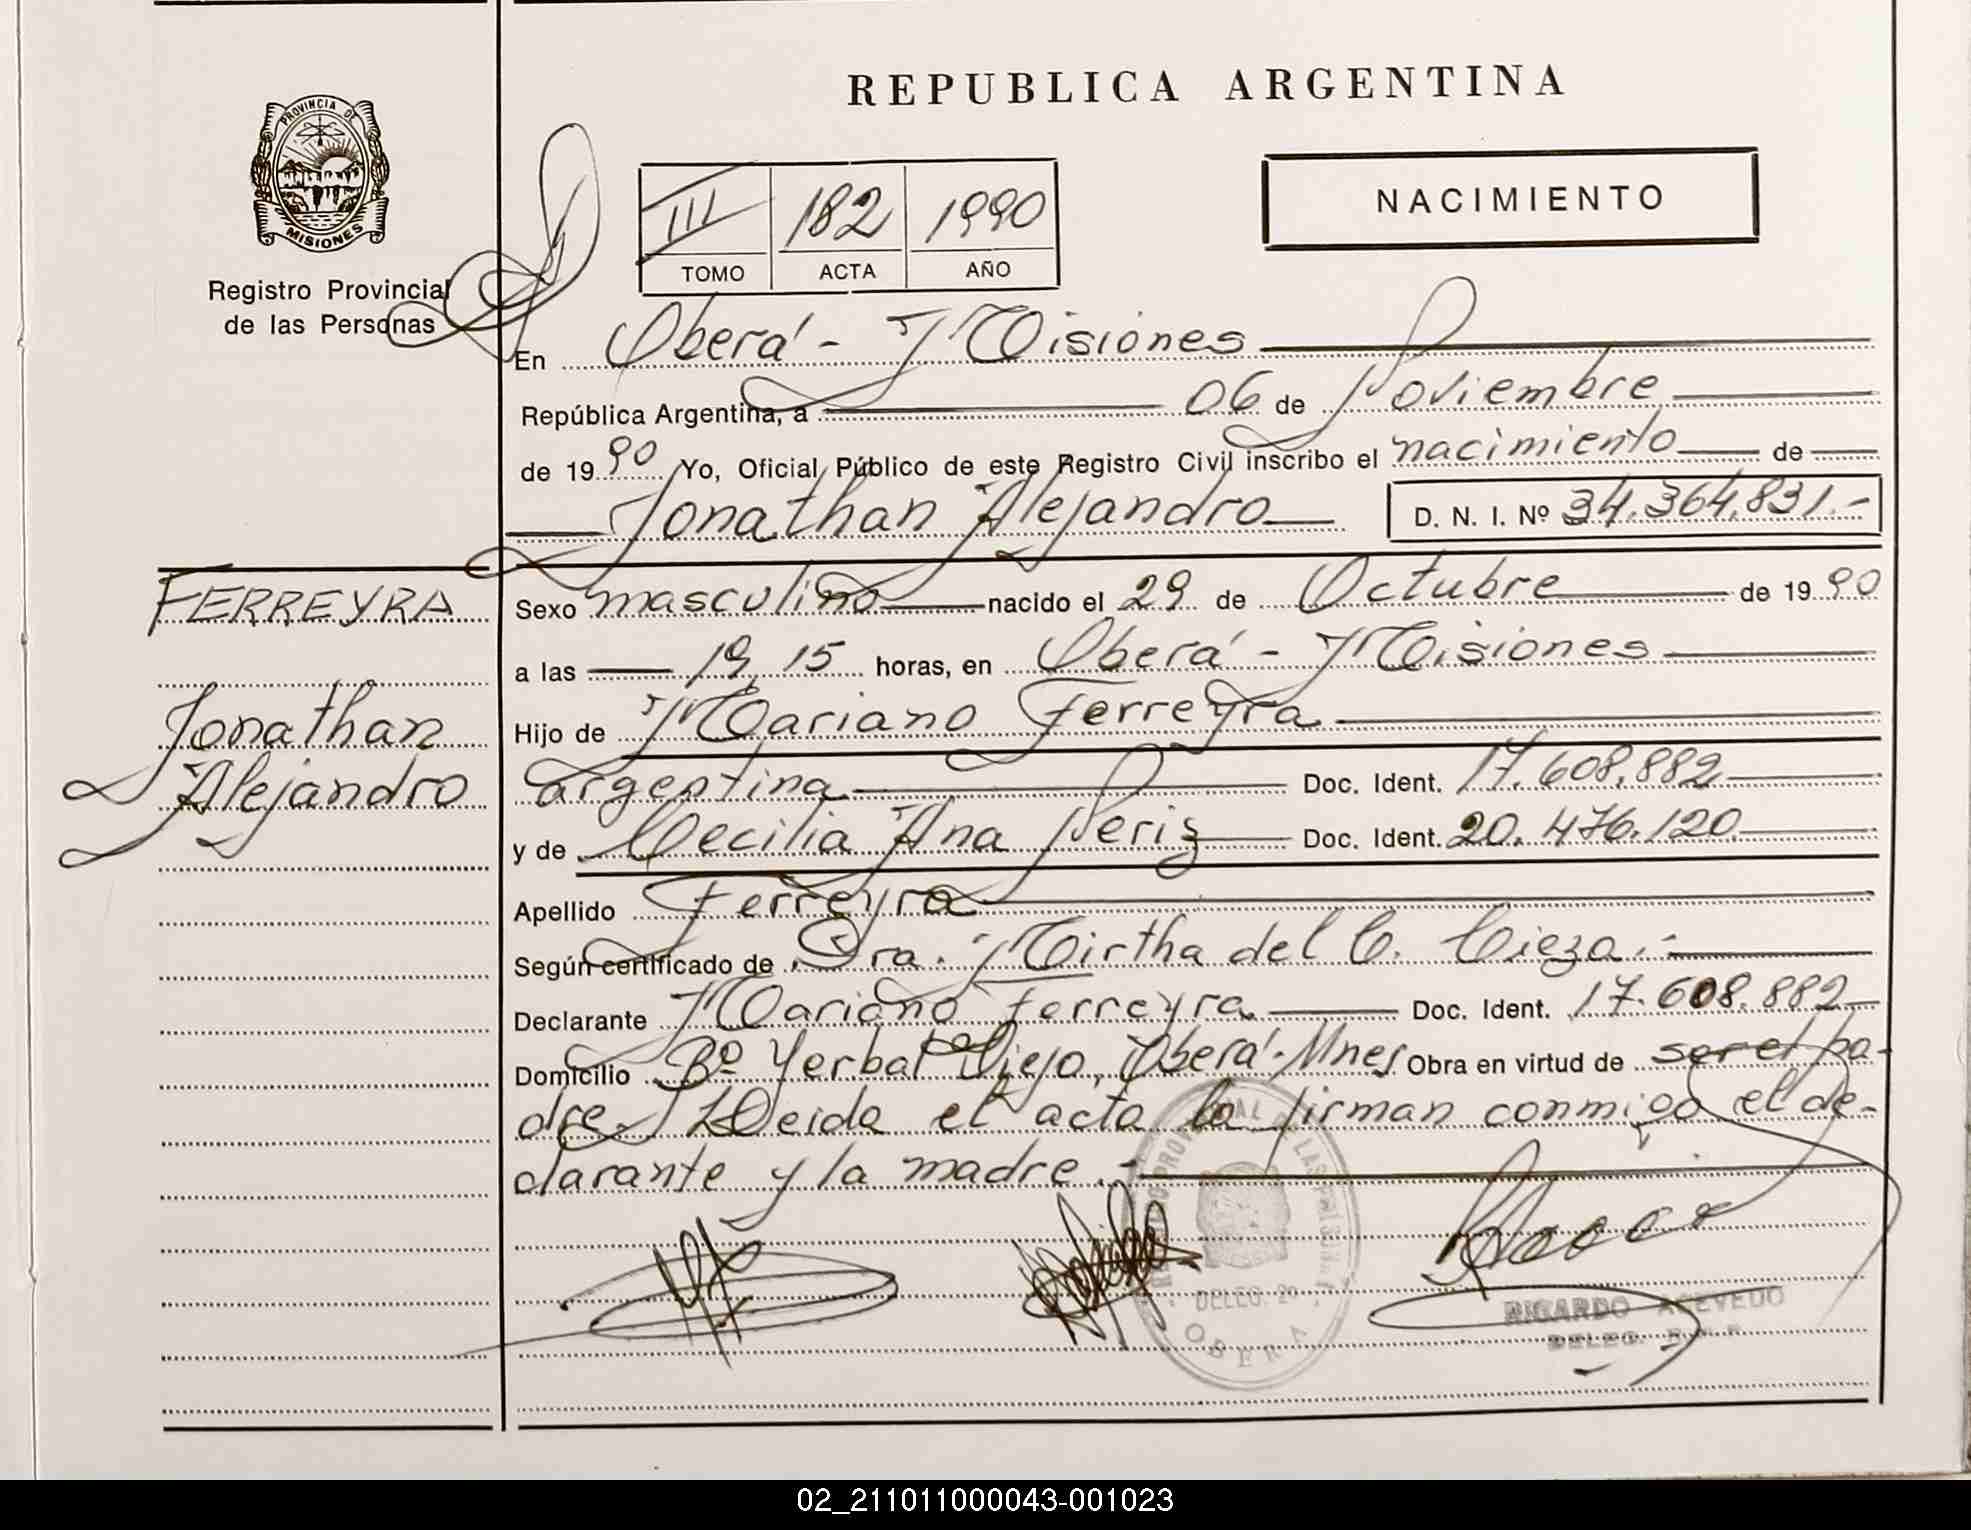 REPUBLICA ARGENTINA
PROVINCIA DE
MISIONES
Registro Provincial
de las Personas
III 182 1990
TOMO ACTA AÑO
NACIMIENTO
En Oberá - Misiones
República Argentina, a 06 de Noviembre
de 1990 Yo, Oficial Público de este Registro Civil inscribo el nacimiento de
Jonathan Alejandro D. N. I. Nº 34.364.831.-
FERREYRA
Jonathan
Alejandro
Sexo masculino nacido el 29 de Octubre de 1990
a las 19,15 horas, en Oberá - Misiones
Hijo de Mariano Ferreyra
argentina Doc. Ident. 17.608.882
y de Cecilia Ana Periz Doc. Ident. 20.476.120
Apellido Ferreyra
Según certificado de Dra. Mirtha del C. Cieza.-
Declarante Mariano Ferreyra Doc. Ident. 17.608.882
Domicilio Bº Yerbal Viejo, Oberá-Mnes Obra en virtud de ser el pa-
dre. Leida el acta la firman conmigo el de-
clarante y la madre.-
DELEG. 20
OBERA
RICARDO ACEVEDO
DELEG.
02_211011000043-001023